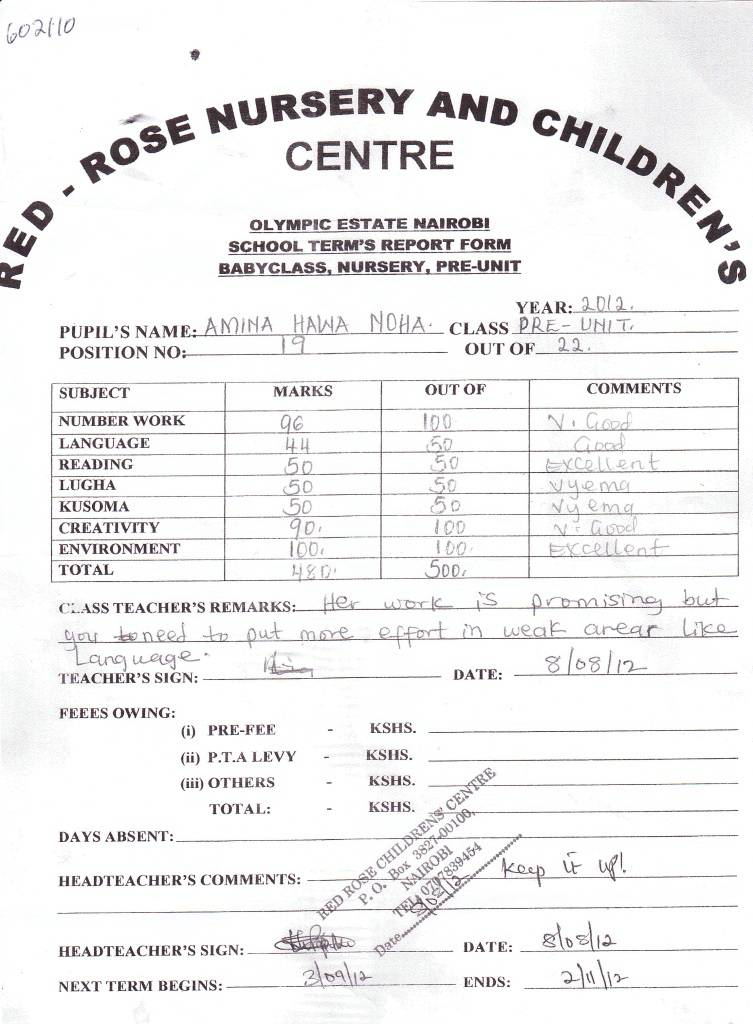 602110
RED - ROSE NURSERY AND CHILDREN'S
CENTRE
OLYMPIC ESTATE NAIROBI
SCHOOL TERM'S REPORT FORM
BABYCLASS, NURSERY, PRE-UNIT
YEAR: 2012.
PUPIL'S NAME: AMINA HAWA NOHA. CLASS PRE-UNIT.
POSITION NO: 19 OUT OF 22.
SUBJECT MARKS OUT OF COMMENTS
NUMBER WORK 96 100 V. Good
LANGUAGE 44 50 Good
READING 50 50 Excellent
LUGHA 50 50 Vyema
KUSOMA 50 50 Vyema
CREATIVITY 90. 100 V. Good
ENVIRONMENT 100. 100. Excellent
TOTAL 480. 500.
CLASS TEACHER'S REMARKS: Her work is promising but
you need to put more effort in weak arear like
Language.
TEACHER'S SIGN: DATE: 8/08/12
FEEES OWING:
(i) PRE-FEE - KSHS.
(ii) P.T.A LEVY - KSHS.
(iii) OTHERS - KSHS.
TOTAL: - KSHS.
DAYS ABSENT:
RED ROSE CHILDRENS' CENTRE
P. O. Box 3827-00100,
NAIROBI
TEL: 0707839454
Date
HEADTEACHER'S COMMENTS: Keep it up!
HEADTEACHER'S SIGN: DATE: 8/08/12
NEXT TERM BEGINS: 3/09/12 ENDS: 2/11/12